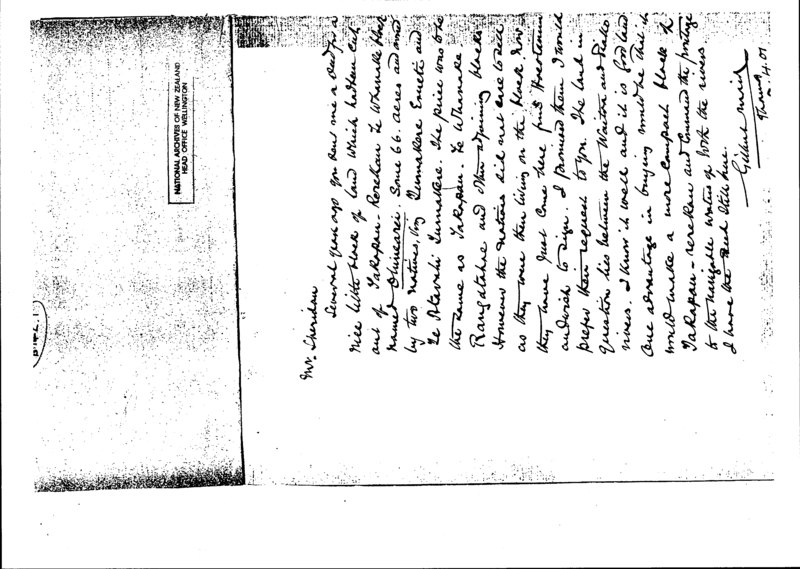 NATIONAL ARCHIVES OF NEW ZEALAND
HEAD OFFICE WELLINGTON
Mr. Sheridan
Several years ago you sent me a deed for a
nice little block of land which had been cut
out of Takapau - Te Whanake Block
named Some 66 acres and owned
by two natives, Viz and
Te The price was to be
the same as Takapau - Te Whanake
and other adjoining blocks
However the natives did not care to sell
as they were then living on the block. Now
they have just come here find
and wish to sign. I promised them I would
prefer their request to you. The land in
question lies between the Waitoa and Piako
rivers. I know it well and it is good land
One advantage in buying would be that it
would make a more compact block of
Takapau - and command the frontage
to the navigable waters of both the rivers.
I have the deed still here.
Gilbert Mair
Thames
4.01